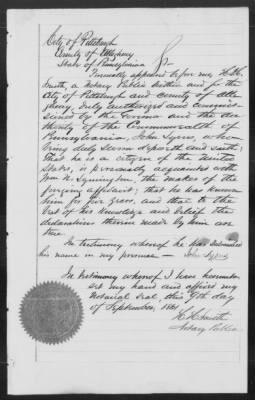 City of Pittsburgh
County of Allegheny
State of Pennsylvania
Personally appeared before me H.H.
Smith, a Notary Public within and for the
City of Pittsburgh and County of Alle
gheny, duly authorized and commis=
sioned by the Governor and the Au
thority of the Commonwealth of
Pennsylvania, John
being duly sworn deposeth and saith:
That he is a citizen of the United
States, is personally acquainted with
Wm the maker of the
forgoing affidavit; that he has known
him for five years, and that to the
best of his knowledge and belief the
declarations therein made by him are
true.
In testimony whereof he has subscribed
his name in my presence — John
In testimony whereof I have hereunto
set my hand and affixed my
notarial seal this 9th day
of September, 1861
H. H. Smith
Notary Public